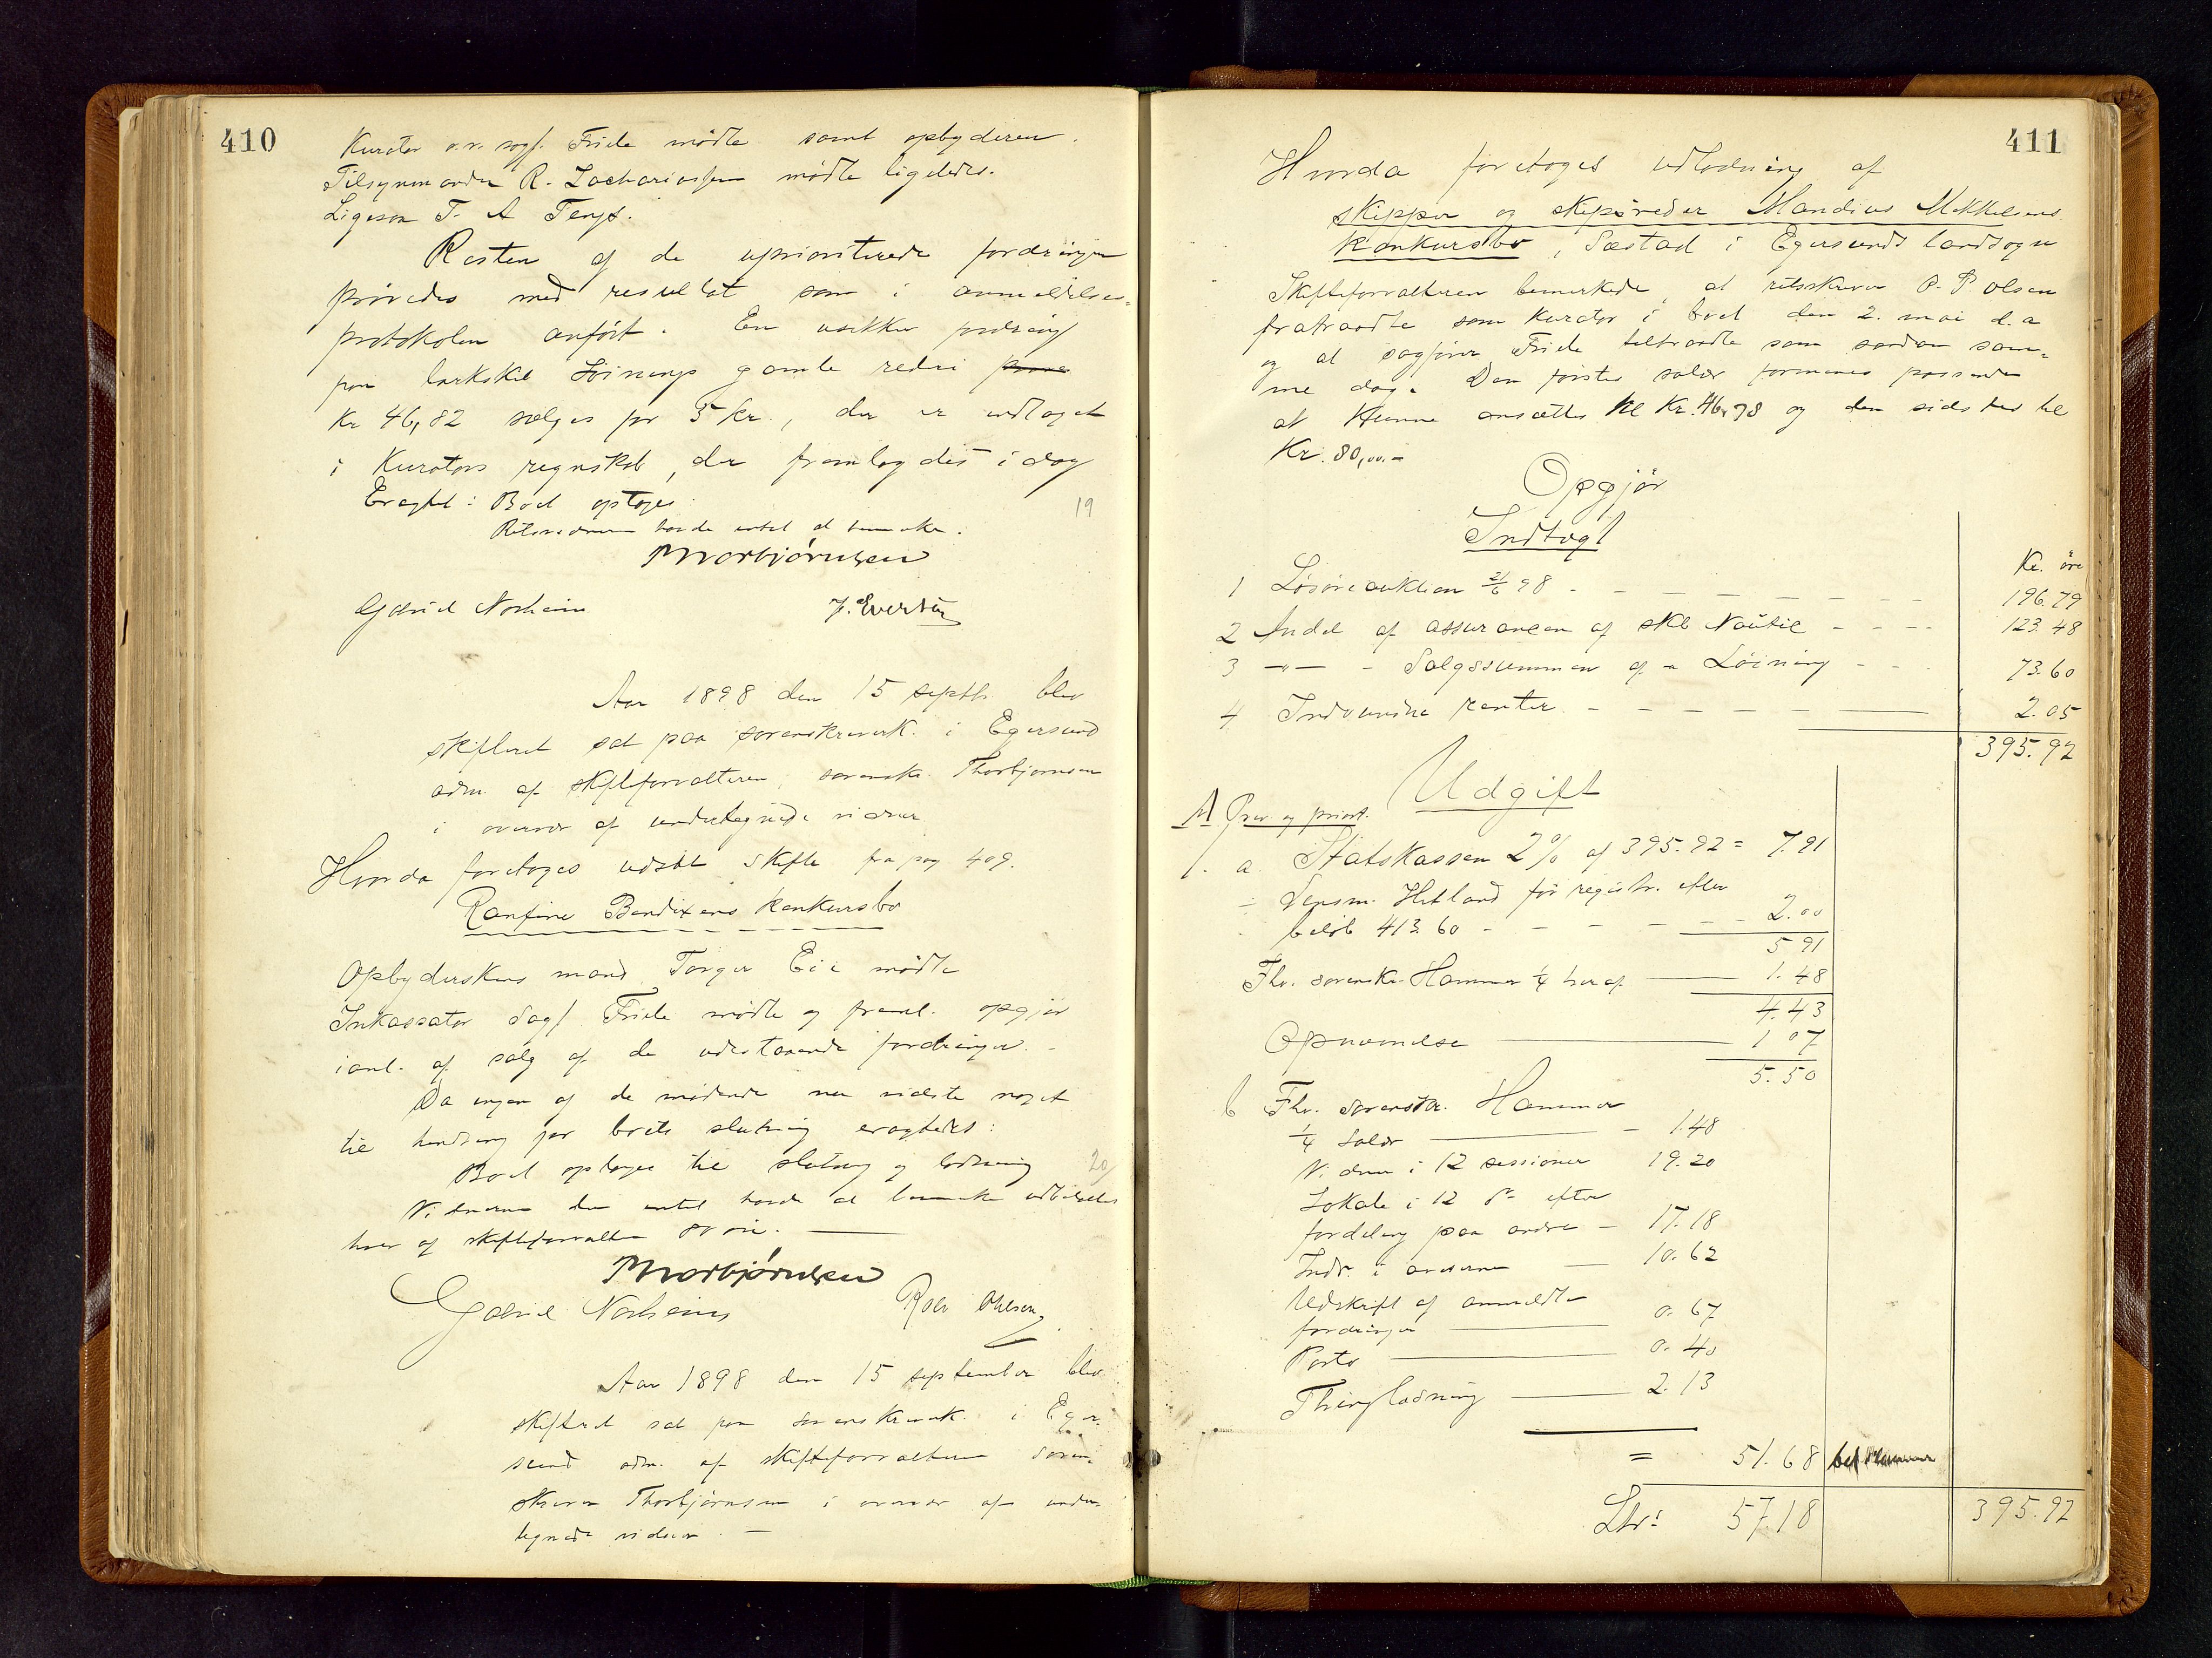 410
Kurator o.r. sagf. Friele mødte samt opbyderen.
Tilsynsmanden R. Zachariassen mødte ligeledes.
Ligesaa T. A
Resten af de uprioriterede fordringer
prøvedes med resultat som i anmeldelses-
protokolen anført. En usikker fordring
paa Løinings gamle rederi
Kr 46,82 sælges for 5 kr., der er indtaget
i Kurators regnskab, der fremlagdes i dag
Eragtet: Boet optages
19
Retsvidnerne havde intet at bemærke.
Thorbjørnsen
Gabriel Norheim
J. Evertsen
Aar 1898 den 15 septb. blev
skifteret sat paa sorenskriverk. i Egersund
adm. af skifteforvalteren, sorenskr. Thorbjørnsen
i overvær af undertegnede vidner
Hvorda foretoges udsat skifte fra pag 409.
Ranfine Bendixens konkursbo
Opbyderskens mand Torger Eie mødte
Inkassator Sagf. Friele mødte og freml. opgjør
i anl. af salg af de udestaaende fordringer. -
Da ingen af de mødende nu vidste noget
til hindring for boets slutning eragtedes:
Boet optages til slutning og lodning
20
Vidnerne der intet havde at bemærke udbetaltes
hver af skifteforvalteren 80 øre.
Thorbjørnsen
Gabriel Norheim
Ohlsen
Aar 1898 den 15 september blev
skifteret sat paa sorenskriverk. i Eger-
sund adm. af skifteforvalteren Soren-
skriver Thorbjørnsen i overvær af under-
tegnede vidner. -
411
Hvorda foretoges udlodning af
skipper og skipsreder Mandius Mikkelsens
Konkursbo, Sæstad i Egersunds landsogn
Skifteforvalteren bemerkede, at retsskriver O. P. Olsen
fratraadte som kurator i boet den 2. mai d.a
og at sagfører Friele tiltraadte som saadan sam-
me dag. Den førstes salær formenes passende
at kunne ansættes til Kr. 46,78 og den sidstes til
Kr. 80,00.-
Opgjør
Indtægt
Kr. øre
1 Løsøreauktion 21/6 98 - - - - 196.79
2 Andel af assurancen af skb Nautic - - - - 123.48
3 -"- - Salgssummen af - Løining - - - 73.60
4 Indvundne renter - - - - - 2.05
395.92
Udgift
A Priv. og priorit.
1. a. Statskassen 2% af 395.92 = 7.91
÷ Lensm. Hetland for registr. efter
beløb 413.60 - - - - - 2.00
5.91
Fhv. sorenskr. Hammer 1/4 heraf 1.48
4.43
Opnævnelse 1 07
5.50
b Fhv. sorenskr. Hammer
1/4 Salær - 1.48
Vidner i 12 sessioner 19.20
Lokale i 12 do efter
fordeling paa andre - 17.18
Indr. i aviserne - 10.62
Udskrift af anmeldte
fordringer 0.67
Porto 0.40
Thinglæsning 2.13
= 51.68 bet Hammer
Ltr: 57.18 395.92